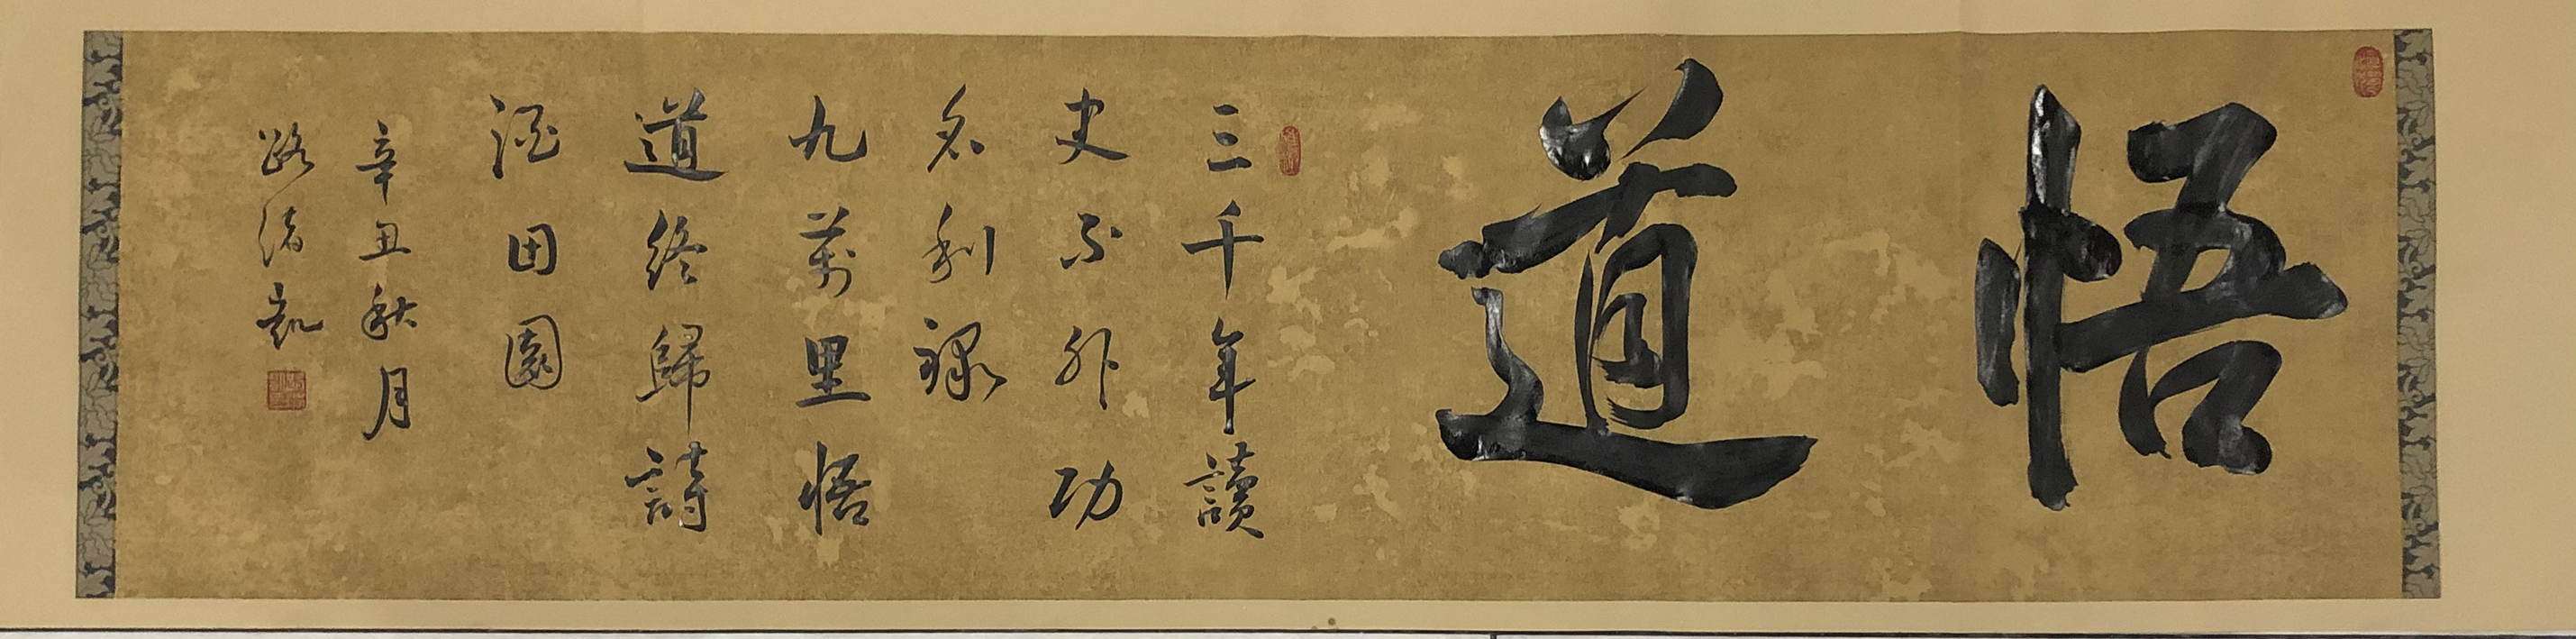 悟道
三千年讀
史不外功
名利祿
九萬里悟
道終歸詩
酒田園
辛丑秋月
路緒凱